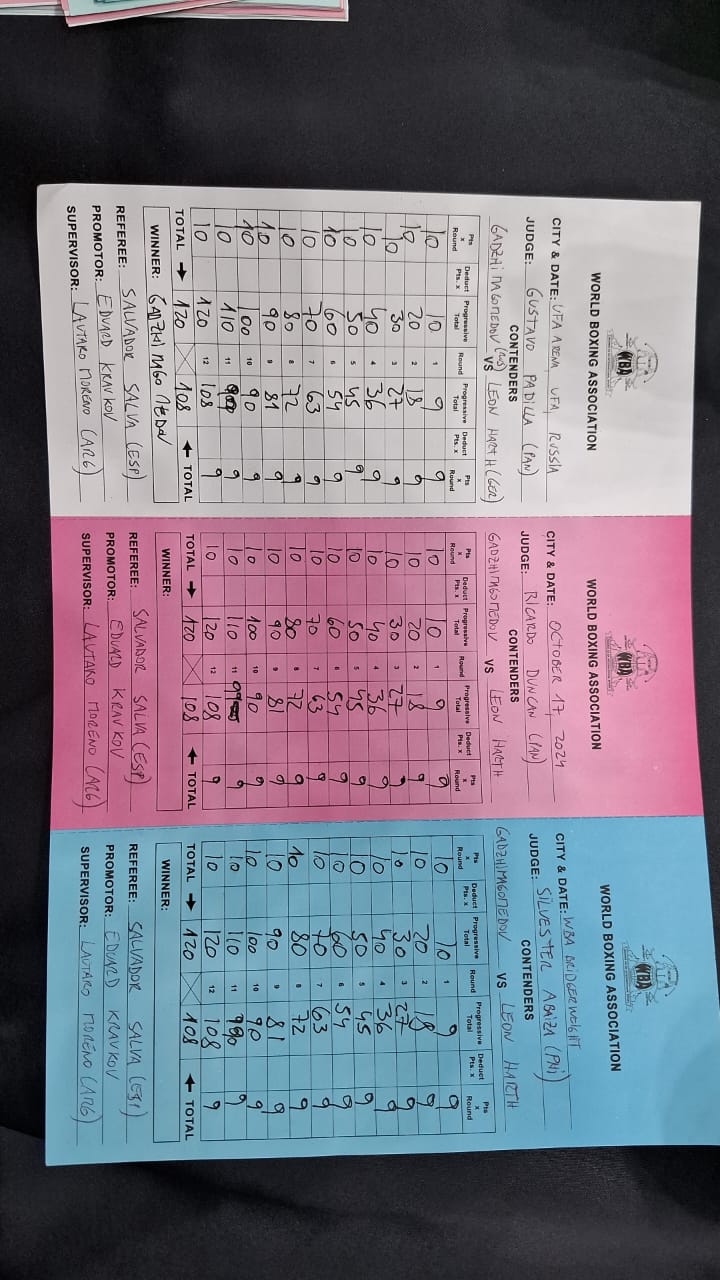 WBA
WORLD BOXING ASSOCIATION
CITY & DATE: UFA ARENA, UFA, RUSSIA
JUDGE: GUSTAVO PADILLA (PAN)
CONTENDERS
GADZHIMAGOMEDOV (RUS) VS LEON HARTH (GER)
Pts x Round Deduct Pts. x Progressive Total Round Progressive Total Deduct Pts. x Pts x Round
10 10 1 9 9
10 20 2 18 9
10 30 3 27 9
10 40 4 36 9
10 50 5 45 9
10 60 6 54 9
10 70 7 63 9
10 80 8 72 9
10 90 9 81 9
10 100 10 90 9
10 110 11 99 9
10 120 12 108 9
TOTAL → 120 108 ← TOTAL
WINNER: GADZHIMAGOMEDOV
REFEREE: SALVADOR SALVA (ESP)
PROMOTOR: EDUARD KRAVKOV
SUPERVISOR: LAUTARO MORENO (ARG)
WBA
WORLD BOXING ASSOCIATION
CITY & DATE: OCTOBER 17, 2024
JUDGE: RICARDO DUNCAN (PAN)
CONTENDERS
GADZHIMAGOMEDOV VS LEON HARTH
Pts x Round Deduct Pts. x Progressive Total Round Progressive Total Deduct Pts. x Pts x Round
10 10 1 9 9
10 20 2 18 9
10 30 3 27 9
10 40 4 36 9
10 50 5 45 9
10 60 6 54 9
10 70 7 63 9
10 80 8 72 9
10 90 9 81 9
10 100 10 90 9
10 110 11 99 9
10 120 12 108 9
TOTAL → 120 108 ← TOTAL
WINNER:
REFEREE: SALVADOR SALVA (ESP)
PROMOTOR: EDUARD KRAVKOV
SUPERVISOR: LAUTARO MORENO (ARG)
WBA
WORLD BOXING ASSOCIATION
CITY & DATE: WBA BRIDGERWEIGHT
JUDGE: SILVESTER ABAINZA (PHI)
CONTENDERS
GADZHIMAGOMEDOV VS LEON HARTH
Pts x Round Deduct Pts. x Progressive Total Round Progressive Total Deduct Pts. x Pts x Round
10 10 1 9 9
10 20 2 18 9
10 30 3 27 9
10 40 4 36 9
10 50 5 45 9
10 60 6 54 9
10 70 7 63 9
10 80 8 72 9
10 90 9 81 9
10 100 10 90 9
10 110 11 99 9
10 120 12 108 9
TOTAL → 120 108 ← TOTAL
WINNER:
REFEREE: SALVADOR SALVA (ESP)
PROMOTOR: EDUARD KRAVKOV
SUPERVISOR: LAUTARO MORENO (ARG)